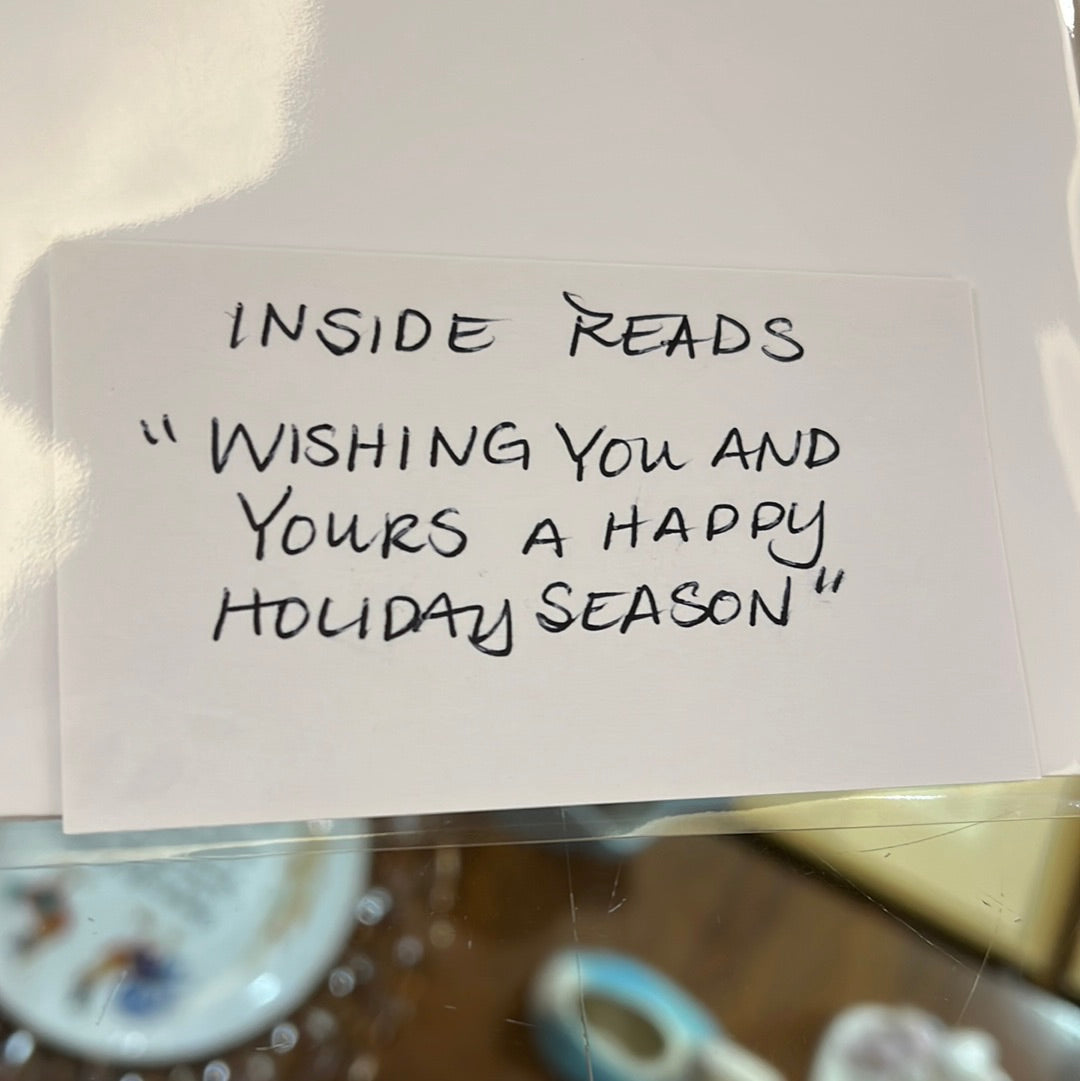 INSIDE READS
"WISHING YOU AND
YOURS A HAPPY
HOLIDAY SEASON"